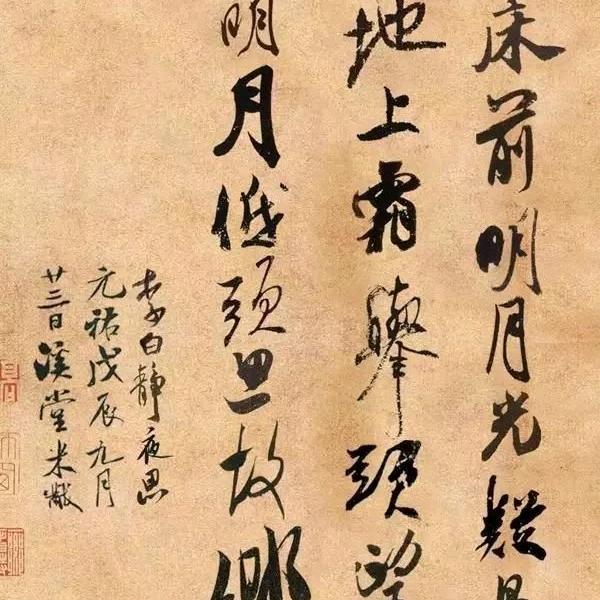 床前明月光疑
地上霜舉頭望
明月低頭思故鄉
李白靜夜思
元祐戊辰九月
廿三日溪堂米黻